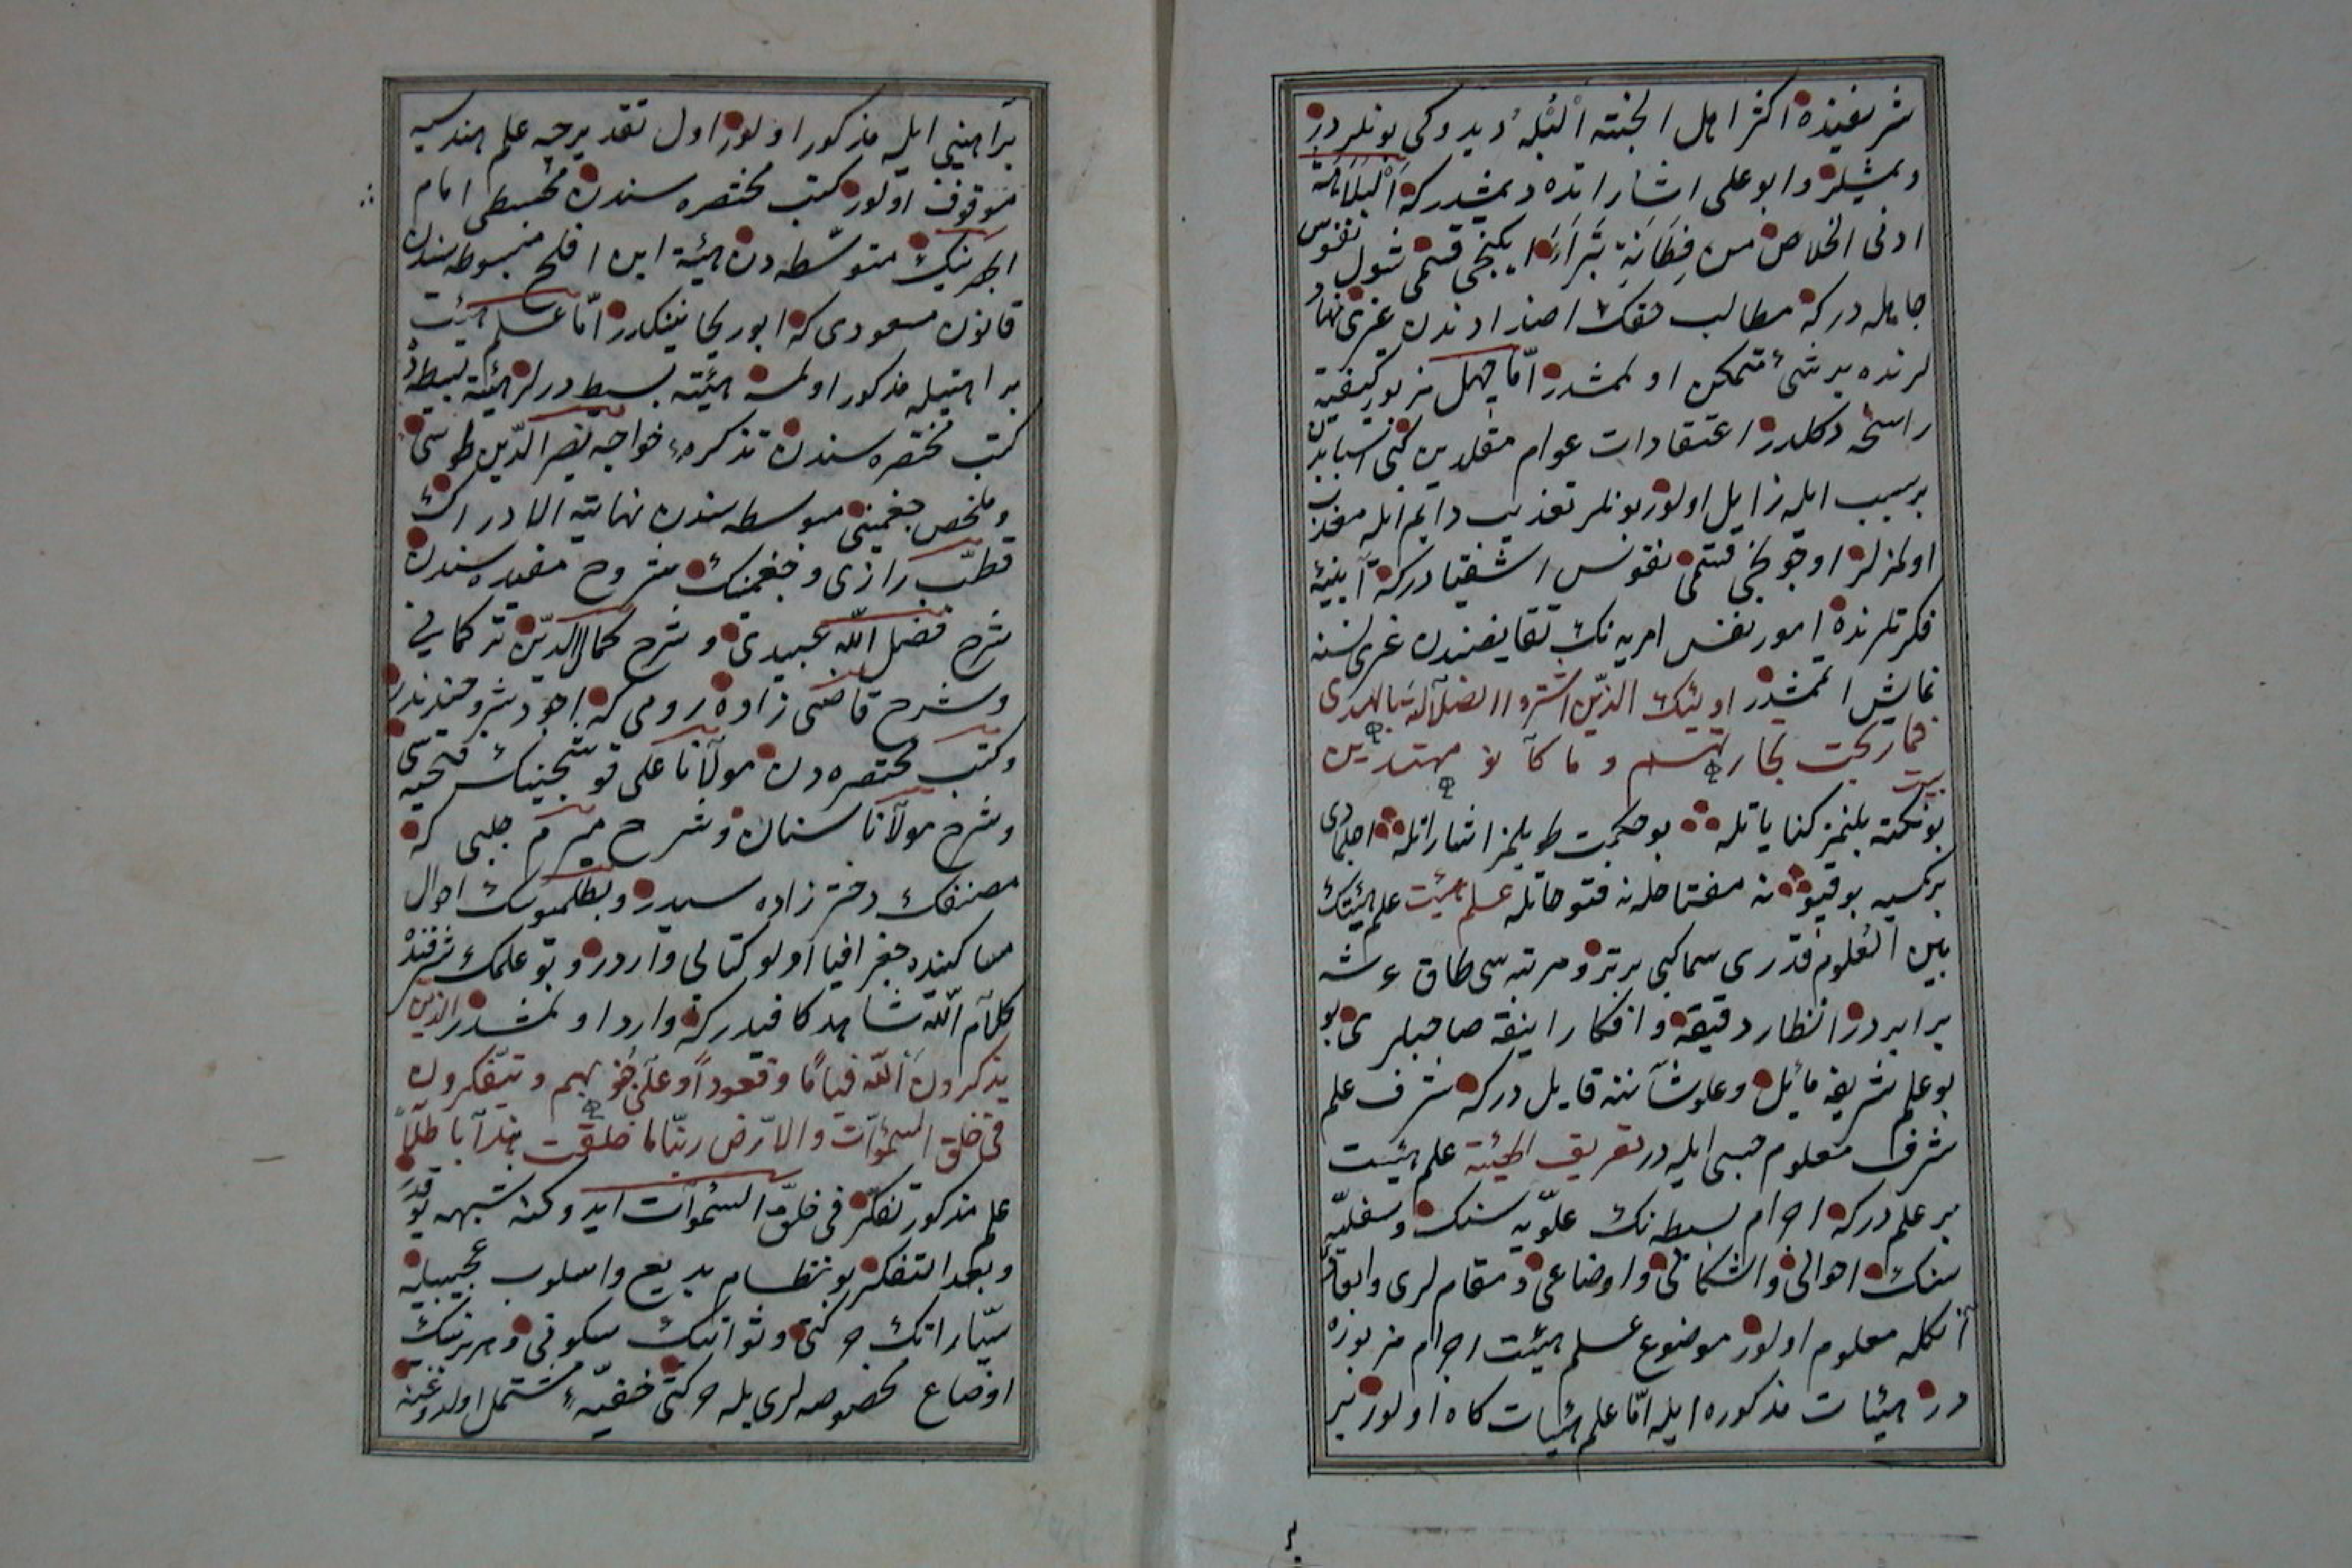 شريفنده اكثر اهل الجنته البُله ديدوكى بونلردر
ديمشلر وابو على اشاراتده ديمشدركه البلاهة
ادنى الخلاص من فطانةٍ بَتْراَء ايكنجى قسمى شول نفوس
جاهله دركه مطالب حقك اضدادندن غرى نهاد
لرنده برشئ متمكن اولمشدر امّا جهل مزبور كيفيته
راسخه دكلدر اعتقادات عوام مقلدين كبى اسبابدن
برسبب ايله زايل اولور بونلر تعذيب دايم ايله معذب
اولمزلر اوچونجى قسمى نفوس اشقيادركه آيينهٔ
فكرتلرنده امور نفس امريه نك نقايضندن غرى نسنه
نمايش ايتمشدر اوليئك الذين اشتروا الضلآلة بالهدى
فما ربحت تجارتهم وما كانوا مهتدين
بيت
بونكته بلنمز كنايا تله بو حكمت طويلمز اشاراتله اچلمادى
بركسيه بوقپو نه مفتاحله نه فتوحاتله علم هيئت علم هيئتك
بين العلوم قدرى سماكبى برتر ومرتبه سى طاق عرشه
برابردر انظار دقيقه وافكار انيقه صاحبلرى بو
بو علم شريفه مائل وعلو شآننه قايل دركه شرف علم
شرف معلوم حسبى ايله در تعريف الهيئة علم هيئت
بر علم دركه اجرام بسيطه نك علويه سنك وسفليه
سنك احوالى واشكالى واوضاعى ومقاملرى وابعادى
آنكله معلوم اولور موضوع علم هيئت اجرام مزبوره
در هيئات مذكوره ايله امّا علم هيئات كاه اولور بر
براهينى ايله مذكور اولور اول تقديرجه علم هندسيه
موقوف اولور كتب مختصره سندن مجسطى امام
ابهرينك متوسّطه دن هيئة ابن افلح مبسوطه سندن
قانون مسعودى كه ابو ريحانينكدر امّا علم هيئت
براهينيله مذكور اولمسه هيئته بسيط درلر هيئة بسيطه
كتب مختصره سندن تذكرهٔ خواجه نصر الدين طوسى
وملخص جغمينى مبسوطه سندن نهاية الادراك
قطب رازى وجغمينك شروح مفيده سندن
شرح فضل الله عبيدى وشرح كمال الدين تركمانى
وشرح قاضى زاده رومى كه اجود شروحندندر
وكتب مختصره دن مولانا على قوشجينك فتحيه سى
وشرح مولانا سنان وشرح ميرم چلبى كه
مصنفك دختر زاده سيدر وبطلميوسك احوال
مساكينده جغرافيا اولو كتابى واردر وبو علمك شرفنده
كلام الله شاهد كافيدركه وارد اولمشدر الذين
يذكرون الله قياماً وقعوداً وعلى جنوبهم ويتفكرون
فى خلق السموات والارض ربنا ما خلقت هذا باطلاً
علم مذكور تفكر فى خلق السموات ايدوكنه شبهه يوقدر
وبعد التفكر بو نظام بديع واسلوب عجيبيله
سيّاراتك حركتى وثوابتك سكونى وهر برينك
اوضاع مخصوصه لرى يله حركتى خفيّهٔ مشتمل اولدوغنه